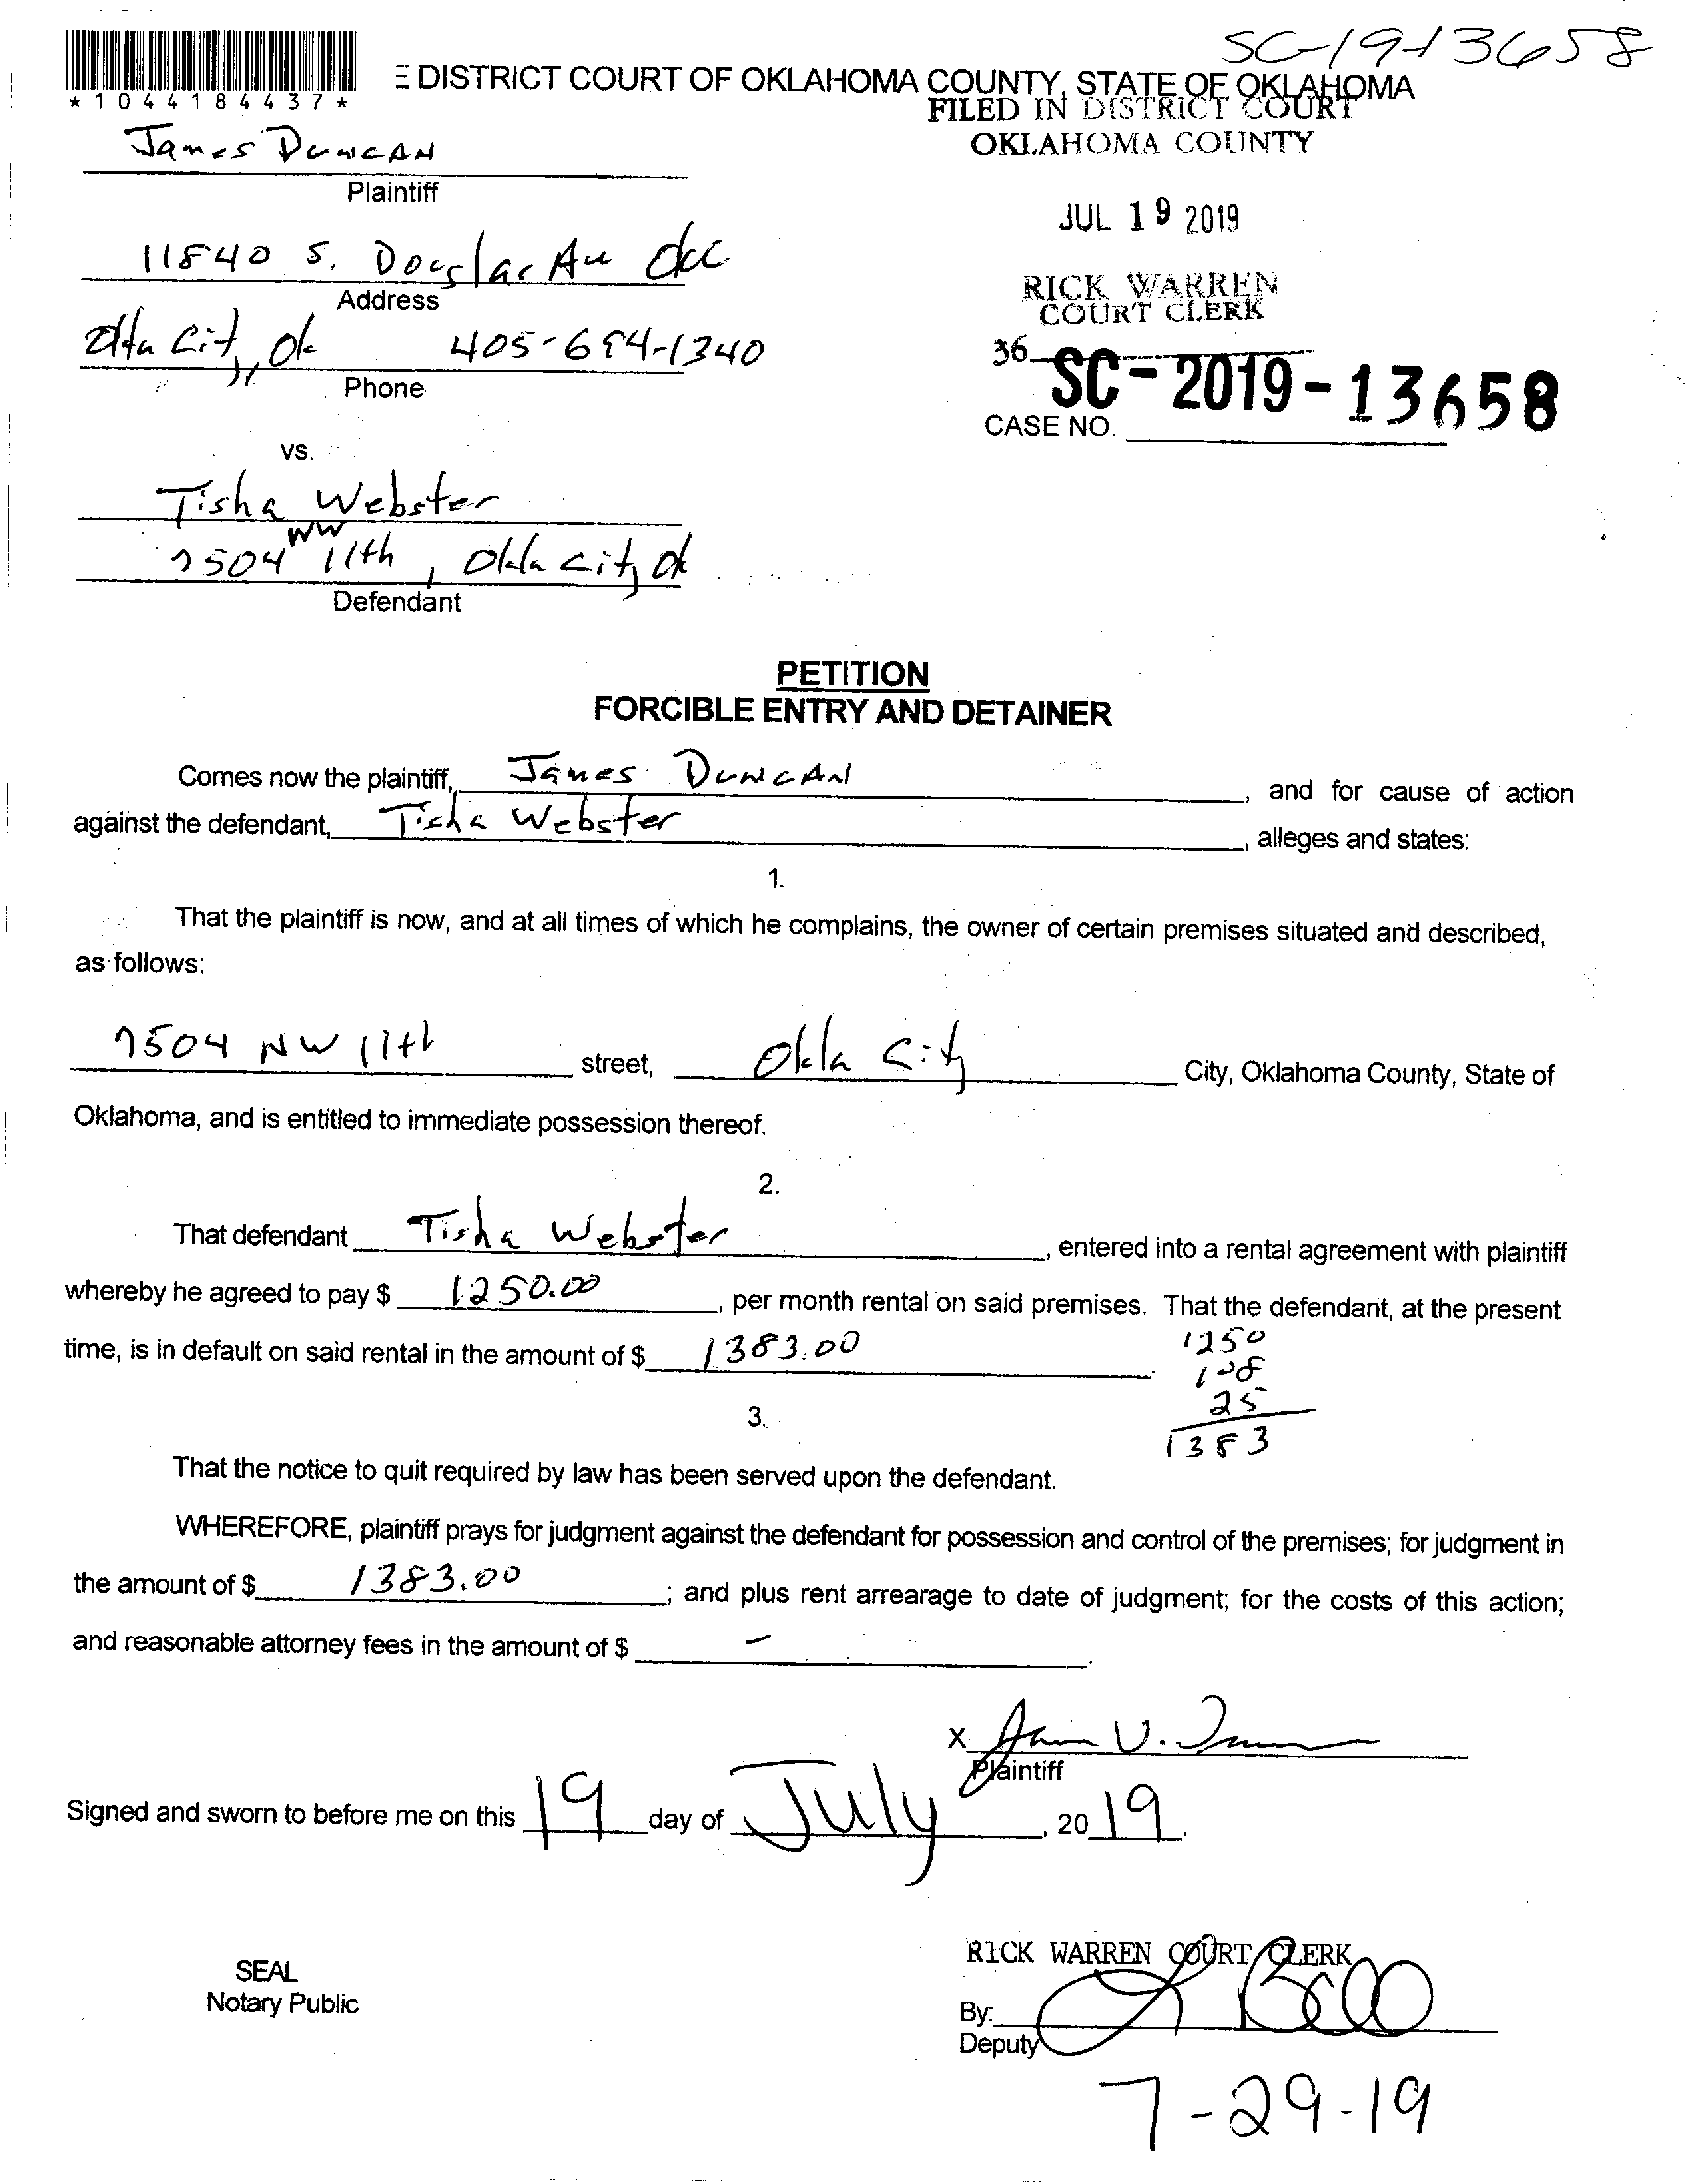 SC-19-13658
*1044184437*
E DISTRICT COURT OF OKLAHOMA COUNTY, STATE OF OKLAHOMA
FILED IN DISTRICT COURT
OKLAHOMA COUNTY
James Duncan
Plaintiff
JUL 19 2019
11840 S. Douglas Av OKC
Address
RICK WARREN
COURT CLERK
Okla City, Ok 405-694-1340
Phone
36
SC-2019-13658
CASE NO.
vs.
Tisha Webster
7504 NW 11th, Okla City Ok
Defendant
PETITION
FORCIBLE ENTRY AND DETAINER
Comes now the plaintiff, James Duncan, and for cause of action
against the defendant, Tisha Webster, alleges and states:
1.
That the plaintiff is now, and at all times of which he complains, the owner of certain premises situated and described,
as follows:
7504 NW 11th street, Okla City City, Oklahoma County, State of
Oklahoma, and is entitled to immediate possession thereof.
2.
That defendant Tisha Webster, entered into a rental agreement with plaintiff
whereby he agreed to pay $ 1250.00, per month rental on said premises. That the defendant, at the present
time, is in default on said rental in the amount of $ 1383.00.
1250
108
25
1383
3.
That the notice to quit required by law has been served upon the defendant.
WHEREFORE, plaintiff prays for judgment against the defendant for possession and control of the premises; for judgment in
the amount of $ 1383.00; and plus rent arrearage to date of judgment; for the costs of this action;
and reasonable attorney fees in the amount of $ -.
X
Plaintiff
Signed and sworn to before me on this 19 day of July, 2019.
SEAL
Notary Public
RICK WARREN COURT CLERK
By:
Deputy
7-29-19